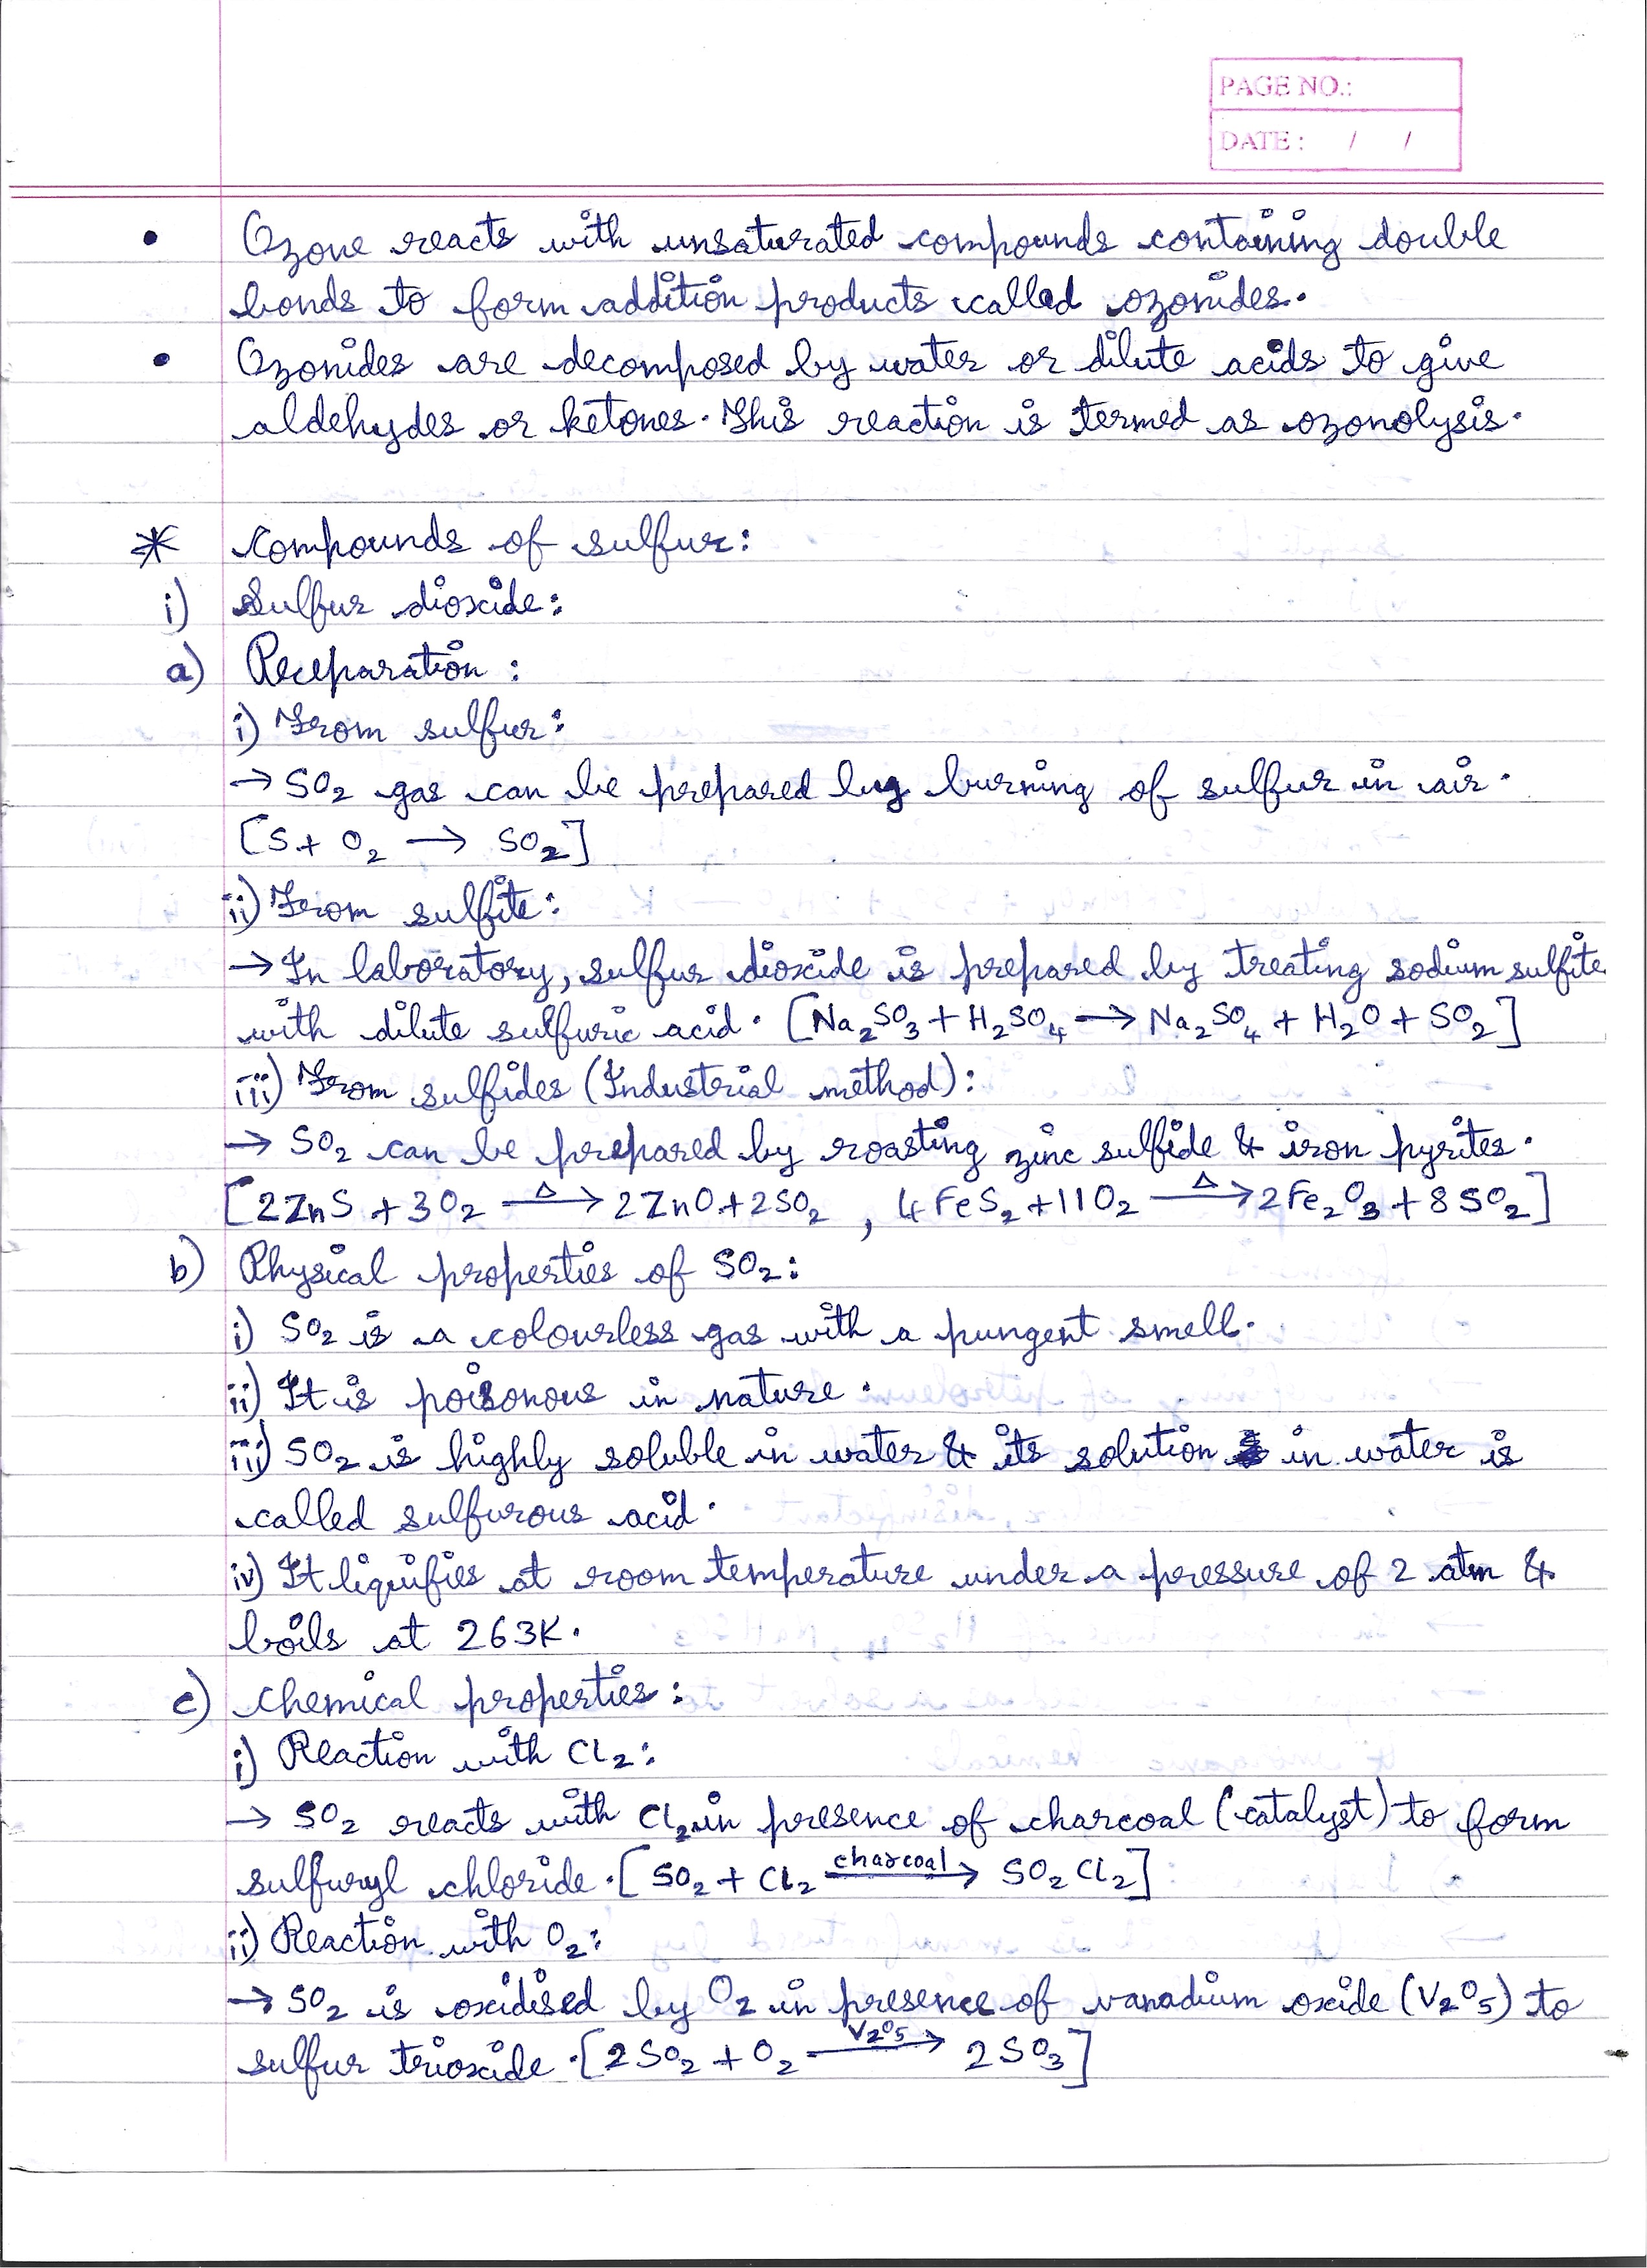 PAGE NO.:
DATE : / /
• Ozone reacts with unsaturated compounds containing double
bonds to form addition products called ozonides.
• Ozonides are decomposed by water or dilute acids to give
aldehydes or ketones. This reaction is termed as ozonolysis.
* Compounds of sulfur:
i) Sulfur dioxide:
a) Preparation :
i) From sulfur:
→ SO₂ gas can be prepared by burning of sulfur in air.
[S + O₂ → SO₂]
ii) From sulfite:
→ In laboratory, sulfur dioxide is prepared by treating sodium sulfite
with dilute sulfuric acid. [Na₂SO₃ + H₂SO₄ → Na₂SO₄ + H₂O + SO₂]
iii) From sulfides (Industrial method):
→ SO₂ can be prepared by roasting zinc sulfide & iron pyrites.
[2ZnS + 3O₂ —Δ→ 2ZnO + 2SO₂ , 4FeS₂ + 11O₂ —Δ→ 2Fe₂O₃ + 8SO₂]
b) Physical properties of SO₂:
i) SO₂ is a colourless gas with a pungent smell.
ii) It is poisonous in nature.
iii) SO₂ is highly soluble in water & its solution in water is
called sulfurous acid.
iv) It liquifies at room temperature under a pressure of 2 atm &
boils at 263K.
c) Chemical properties:
i) Reaction with Cl₂:
→ SO₂ reacts with Cl₂ in presence of charcoal (catalyst) to form
sulfuryl chloride. [SO₂ + Cl₂ —charcoal→ SO₂Cl₂]
ii) Reaction with O₂:
→ SO₂ is oxidised by O₂ in presence of vanadium oxide (V₂O₅) to
sulfur trioxide. [2SO₂ + O₂ —V₂O₅→ 2SO₃]